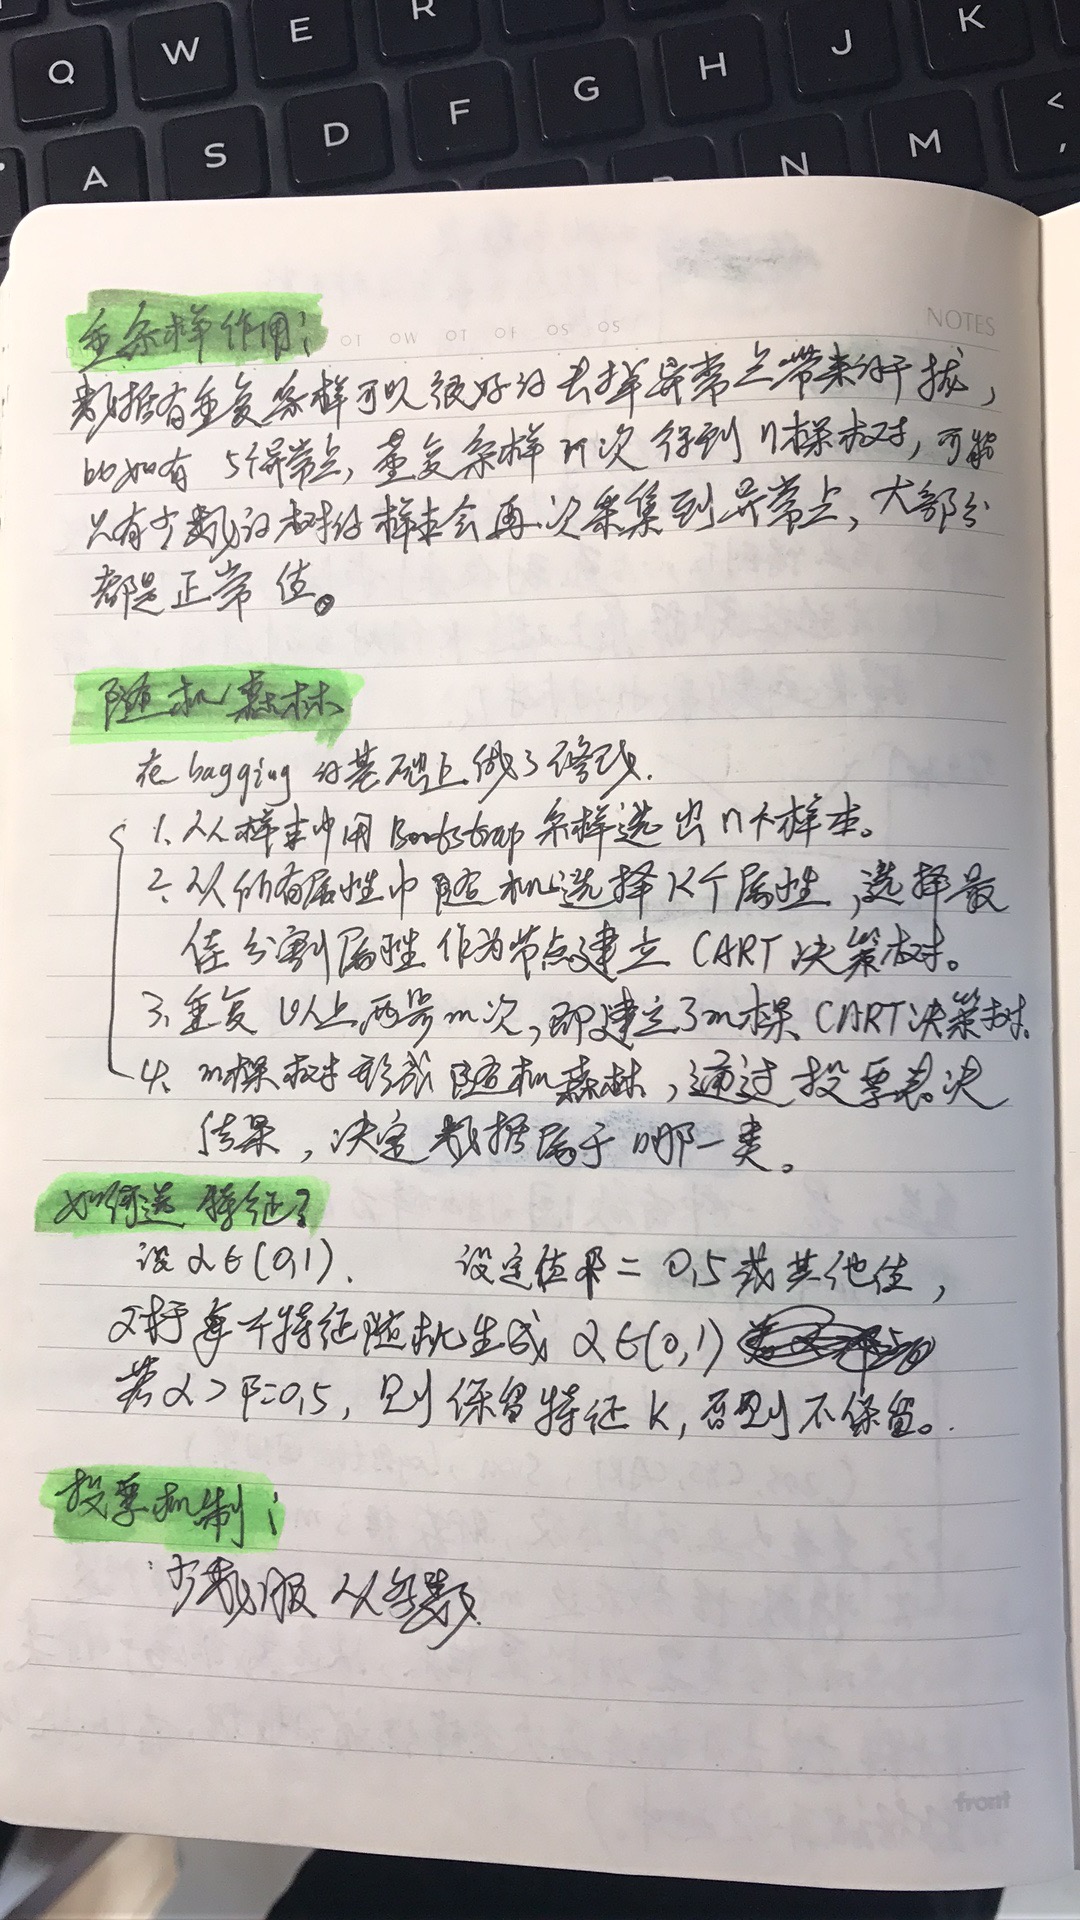 Q W E R
A S D F G H J K
N M <
,
NOTES
重采样作用:
数据有重复采样可以很好的去掉异常点带来的干扰,
比如有 5个异常点, 重复采样 n次得到 n棵树, 可能
只有少数的树的样本会再次采集到异常点, 大部分
都是正常值。
随机森林
在bagging的基础上做了修改.
1. 从样本中用Bootstrap采样选出n个样本。
2. 从所有属性中随机选择K个属性, 选择最
佳分割属性作为节点建立 CART决策树。
3. 重复以上两步m次, 即建立了m棵 CART决策树.
4. m棵树形成随机森林, 通过投票表决
结果, 决定数据属于哪一类。
如何选特征?
设 α∈(0,1). 设定值 P = 0.5或其他值,
对于每个特征随机生成 α∈(0,1)
若α>P=0.5, 则保留特征 k, 否则不保留。
投票机制:
少数服从多数
front